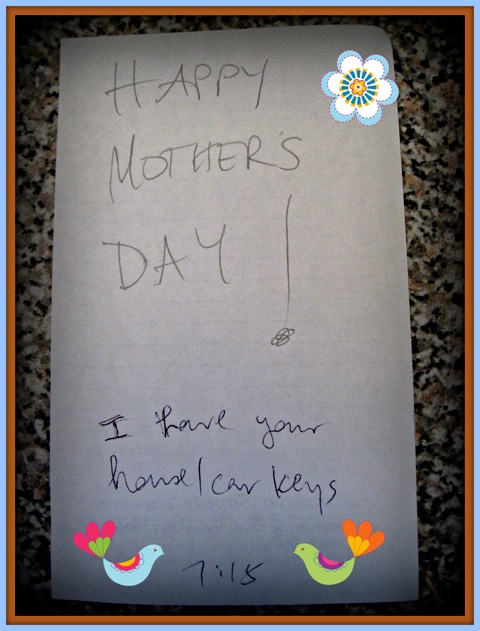 HAPPY
MOTHER'S
DAY !
I have your
house/car keys
7:15